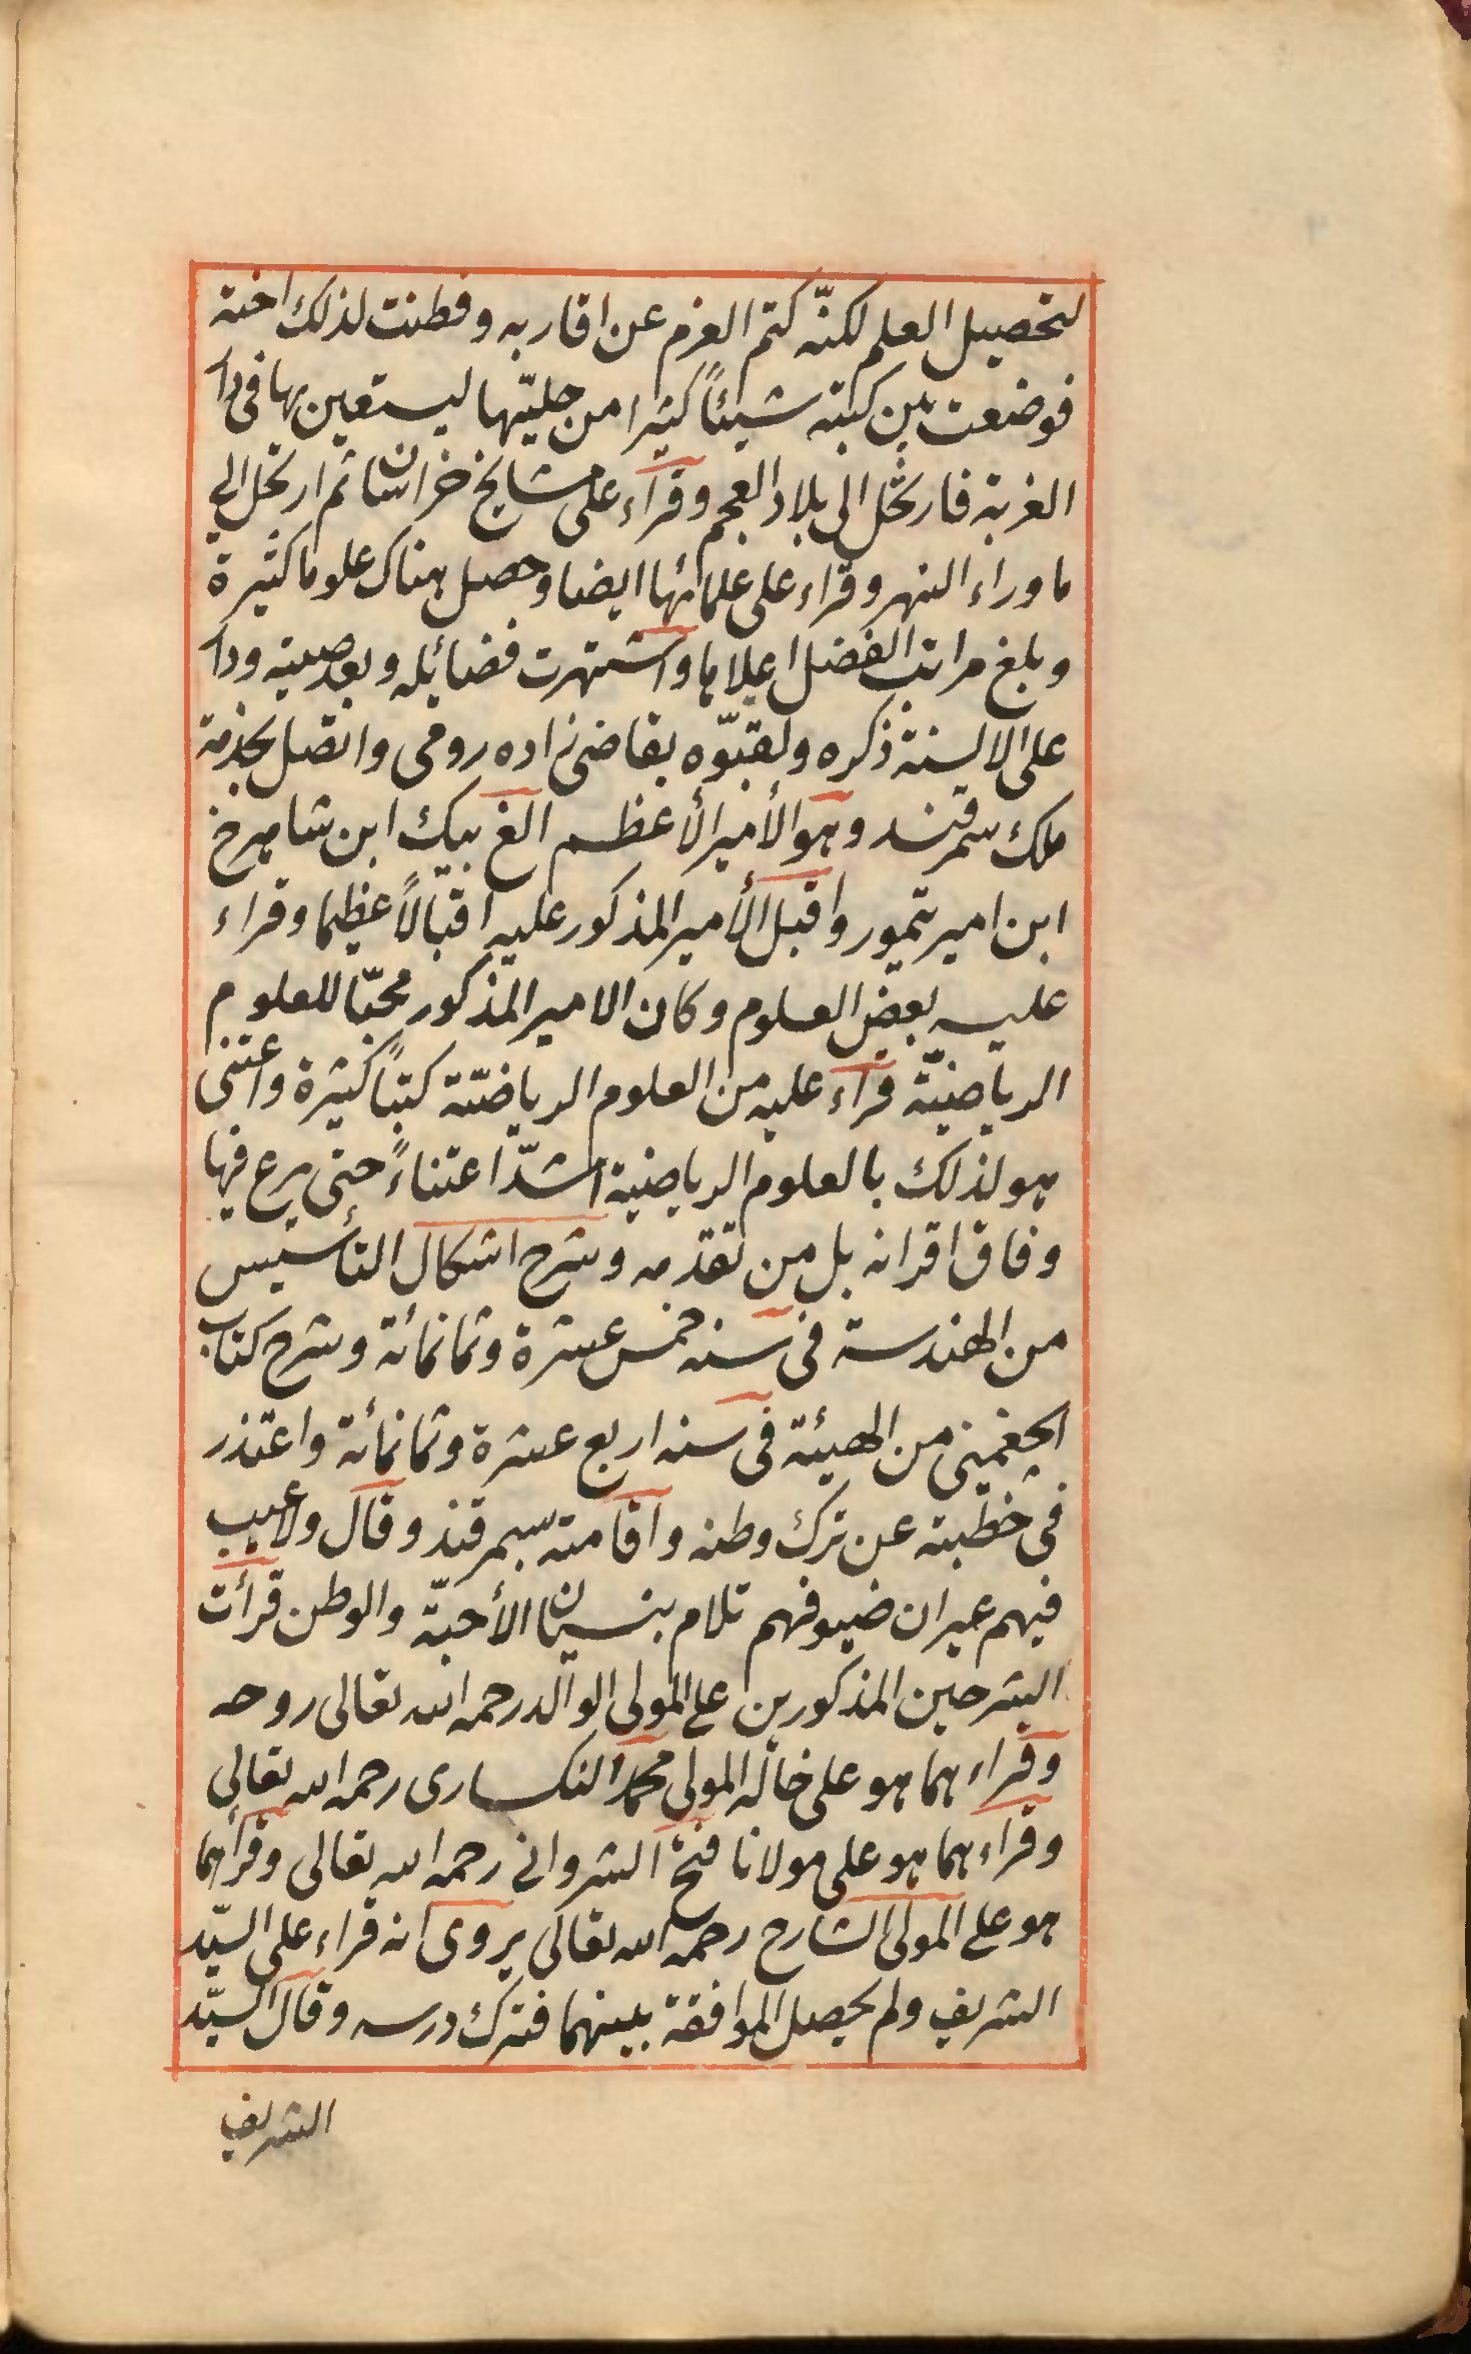 لتحصيل العلم لكنّه كتم العزم عن اقاربه وفطنت لذلك اخته
فوضعت بين كتبه شيئاً كثيرا من حليّها ليستعين بها فى دا
الغربة فارتحل الى بلاد العجم وقراء على مشايخ خراسان ثم ارتحل الى
ما وراء النهر وقراء على علمائها ايضا وحصل هناك علوما كثيرة
وبلغ مراتب الفضل اعلاها واشتهرت فضائله وبعد صيته ودا
على الالسنة ذكره ولقبّوه بقاضى زاده رومى واتصل بخدمة
ملك سمرقند وهو الأمير الأعظم الغ بيك ابن شاهرخ
ابن امير تيمور واقبل الأمير المذكور عليه اقبالاً عظيما وقراء
عليه بعض العلوم وكان الامير المذكور محبّا للعلوم
الرياضيّة قراء عليه من العلوم الرياضيّة كتباً كثيرة واعتنى
هو لذلك بالعلوم الرياضية اشدّ اعتناءً حتى برع فيها
وفاق اقرانه بل من تقدمه وشرح اشكال التأسيس
من الهندسة فى سنه خمس عشرة وثمانمائة وشرح كتاب
الجغمينى من الهيئة فى سنه اربع عشرة وثمانمائة واعتذر
فى خطبته عن ترك وطنه واقامته بسمرقند وقال ولاعيب
فيهم غير ان ضيوفهم تلام بنسيان الأحبّة والوطن قرأت
الشرحين المذكورين على المولى الوالد رحمه الله تعالى روحه
وقراء هما هو على خاله المولى محمد النكسارى رحمه الله تعالى
وقراء هما هو على مولانا فتح الشروانى رحمه الله تعالى وقرأهما
هو على المولى الشارح رحمه الله تعالى يروى انه قراء على السيّد
الشريف ولم يحصل الموافقة بينهما فترك درسه وقال السيّد
الشريف